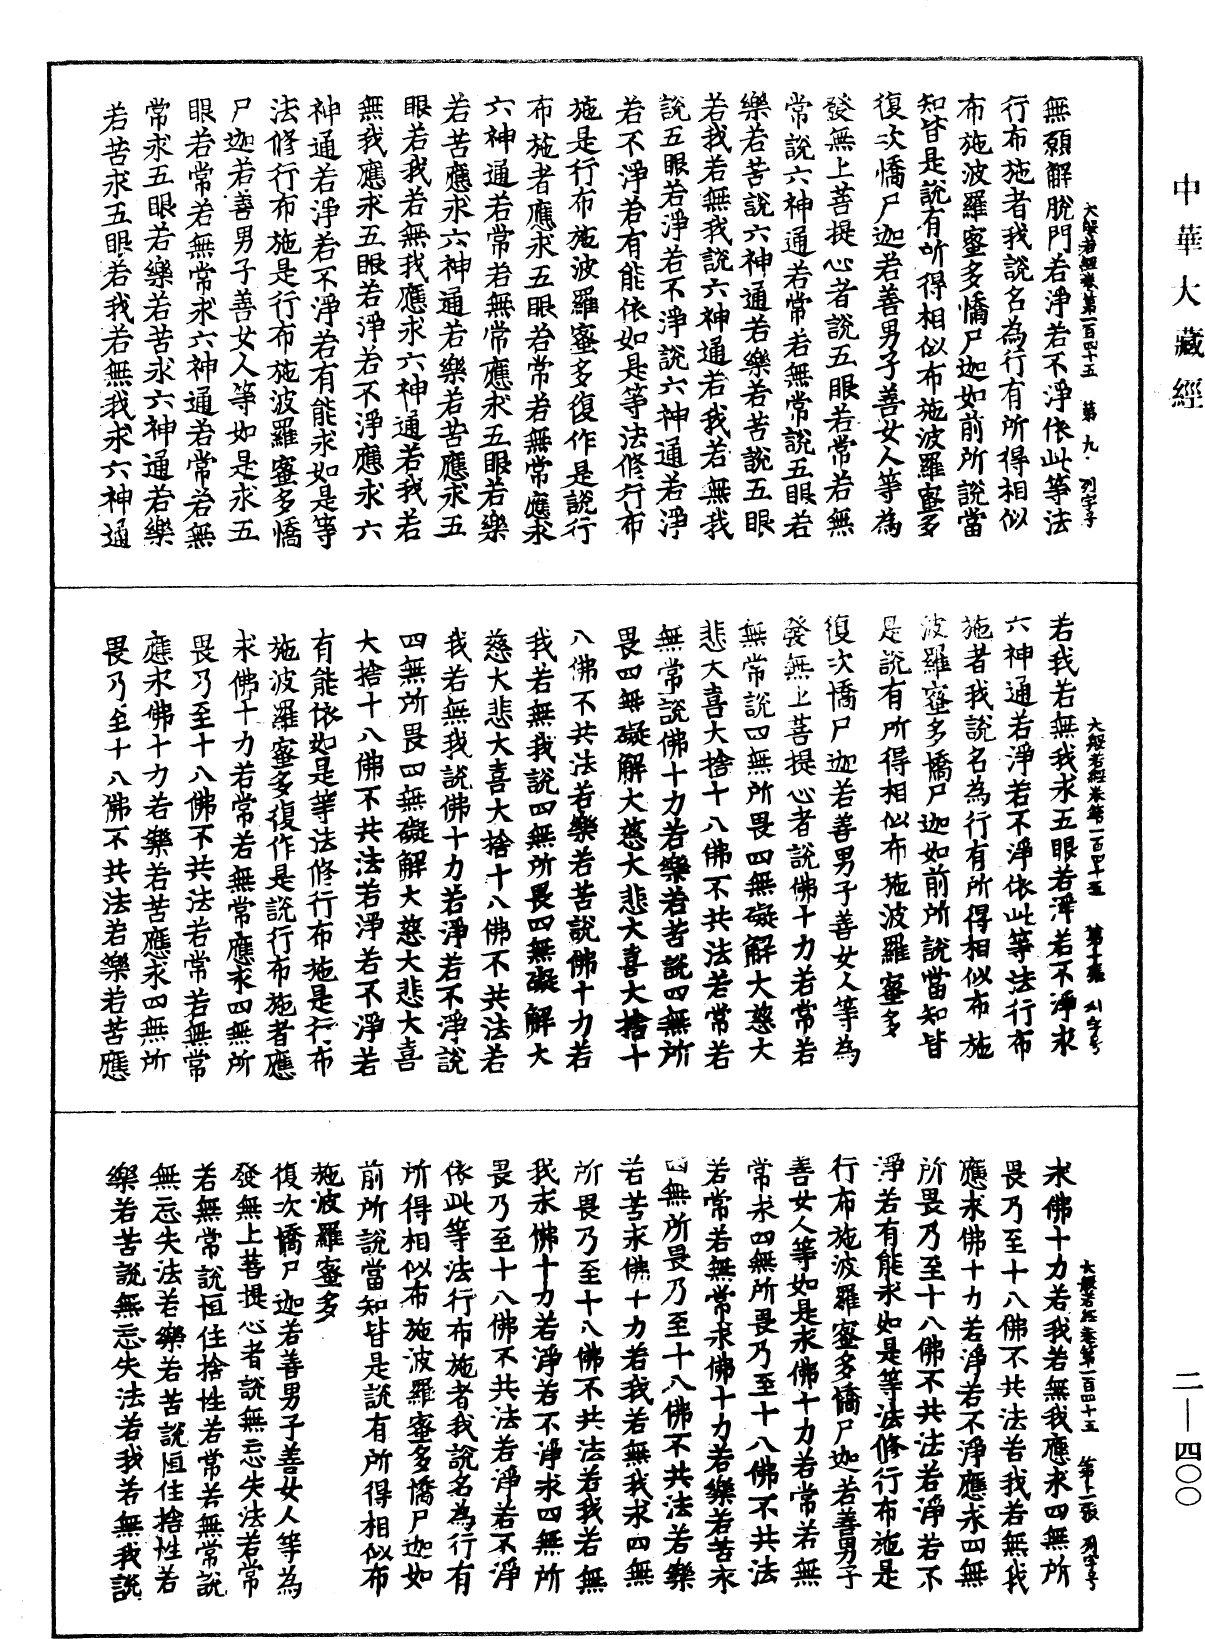 中華大藏經
大般若經卷第一百四十五　第九　列字號
無願解脫門若淨若不淨依此等法
行布施者我說名為行有所得相似
布施波羅蜜多憍尸迦如前所說當
知皆是說有所得相似布施波羅蜜多
復次憍尸迦若善男子善女人等為
發無上菩提心者說五眼若常若無
常說六神通若常若無常說五眼若
樂若苦說六神通若樂若苦說五眼
若我若無我說六神通若我若無我
說五眼若淨若不淨說六神通若淨
若不淨若有能依如是等法修行布
施是行布施波羅蜜多復作是說行
布施者應求五眼若常若無常應求
六神通若常若無常應求五眼若樂
若苦應求六神通若樂若苦應求五
眼若我若無我應求六神通若我若
無我應求五眼若淨若不淨應求六
神通若淨若不淨若有能求如是等
法修行布施是行布施波羅蜜多憍
尸迦若善男子善女人等如是求五
眼若常若無常求六神通若常若無
常求五眼若樂若苦求六神通若樂
若苦求五眼若我若無我求六神通
大般若經卷第一百四十五　第十張　列字號
若我若無我求五眼若淨若不淨求
六神通若淨若不淨依此等法行布
施者我說名為行有所得相似布施
波羅蜜多憍尸迦如前所說當知皆
是說有所得相似布施波羅蜜多
復次憍尸迦若善男子善女人等為
發無上菩提心者說佛十力若常若
無常說四無所畏四無礙解大慈大
悲大喜大捨十八佛不共法若常若
無常說佛十力若樂若苦說四無所
畏四無礙解大慈大悲大喜大捨十
八佛不共法若樂若苦說佛十力若
我若無我說四無所畏四無礙解大
慈大悲大喜大捨十八佛不共法若
我若無我說佛十力若淨若不淨說
四無所畏四無礙解大慈大悲大喜
大捨十八佛不共法若淨若不淨若
有能依如是等法修行布施是行布
施波羅蜜多復作是說行布施者應
求佛十力若常若無常應求四無所
畏乃至十八佛不共法若常若無常
應求佛十力若樂若苦應求四無所
畏乃至十八佛不共法若樂若苦應
大般若經卷第一百四十五　第十一張　列字號
求佛十力若我若無我應求四無所
畏乃至十八佛不共法若我若無我
應求佛十力若淨若不淨應求四無
所畏乃至十八佛不共法若淨若不
淨若有能求如是等法修行布施是
行布施波羅蜜多憍尸迦若善男子
善女人等如是求佛十力若常若無
常求四無所畏乃至十八佛不共法
若常若無常求佛十力若樂若苦求
四無所畏乃至十八佛不共法若樂
若苦求佛十力若我若無我求四無
所畏乃至十八佛不共法若我若無
我求佛十力若淨若不淨求四無所
畏乃至十八佛不共法若淨若不淨
依此等法行布施者我說名為行有
所得相似布施波羅蜜多憍尸迦如
前所說當知皆是說有所得相似布
施波羅蜜多
復次憍尸迦若善男子善女人等為
發無上菩提心者說無忘失法若常
若無常說恒住捨性若常若無常說
無忘失法若樂若苦說恒住捨性若
樂若苦說無忘失法若我若無我說
二—四〇〇